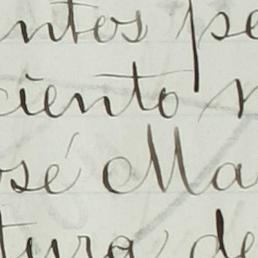 ntos pe
ciento n
osé Ma
tura de